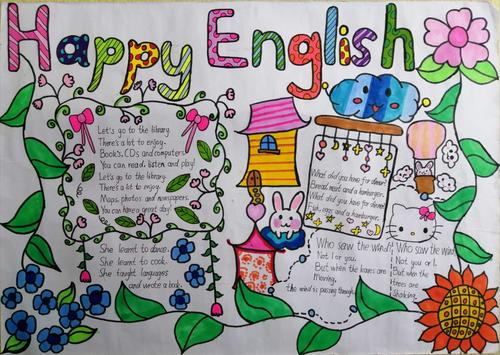 Happy English
Let's go to the library.
There's a lot to enjoy.
Books, CDs and computers.
You can read, listen and play!
Let's go to the library.
There's a lot to enjoy.
Maps, photos and newspapers.
You can have a great day!
She learnt to dance.
She learnt to cook.
She taught languages
and wrote a book.
What did you have for dinner?
Bread, meat and a hamburger.
What did you have for dinner?
Fish, and a hamburger.
Who saw the wind
Not I or you.
But when the leaves are
the wind is passing through
Who saw the wind
Not you or I.
But when the
trees are